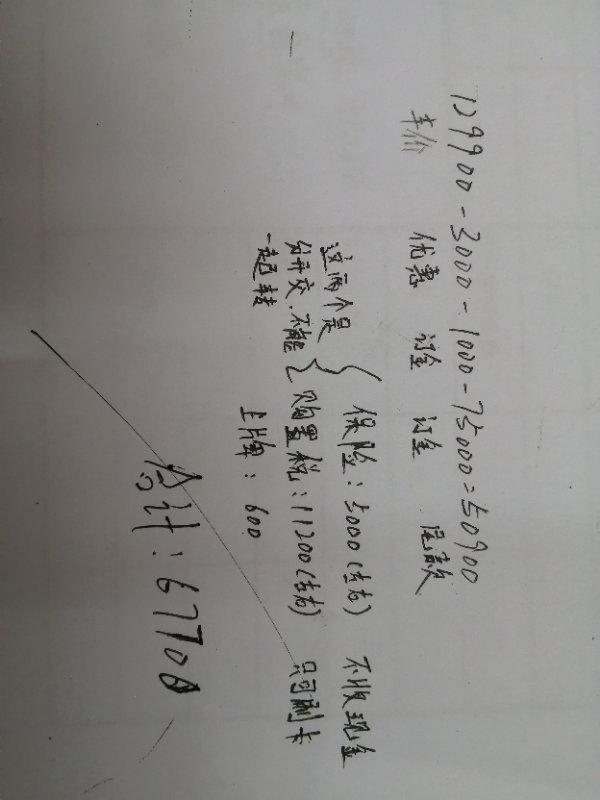 129900-3000-1000-75000=50900
车价 优惠 订金 订金 尾款
这两个是
分开交.不能
一起转
保险：5000(左右) 不收现金
购置税：11200(左右) 只可刷卡
上牌：600
合计：67700